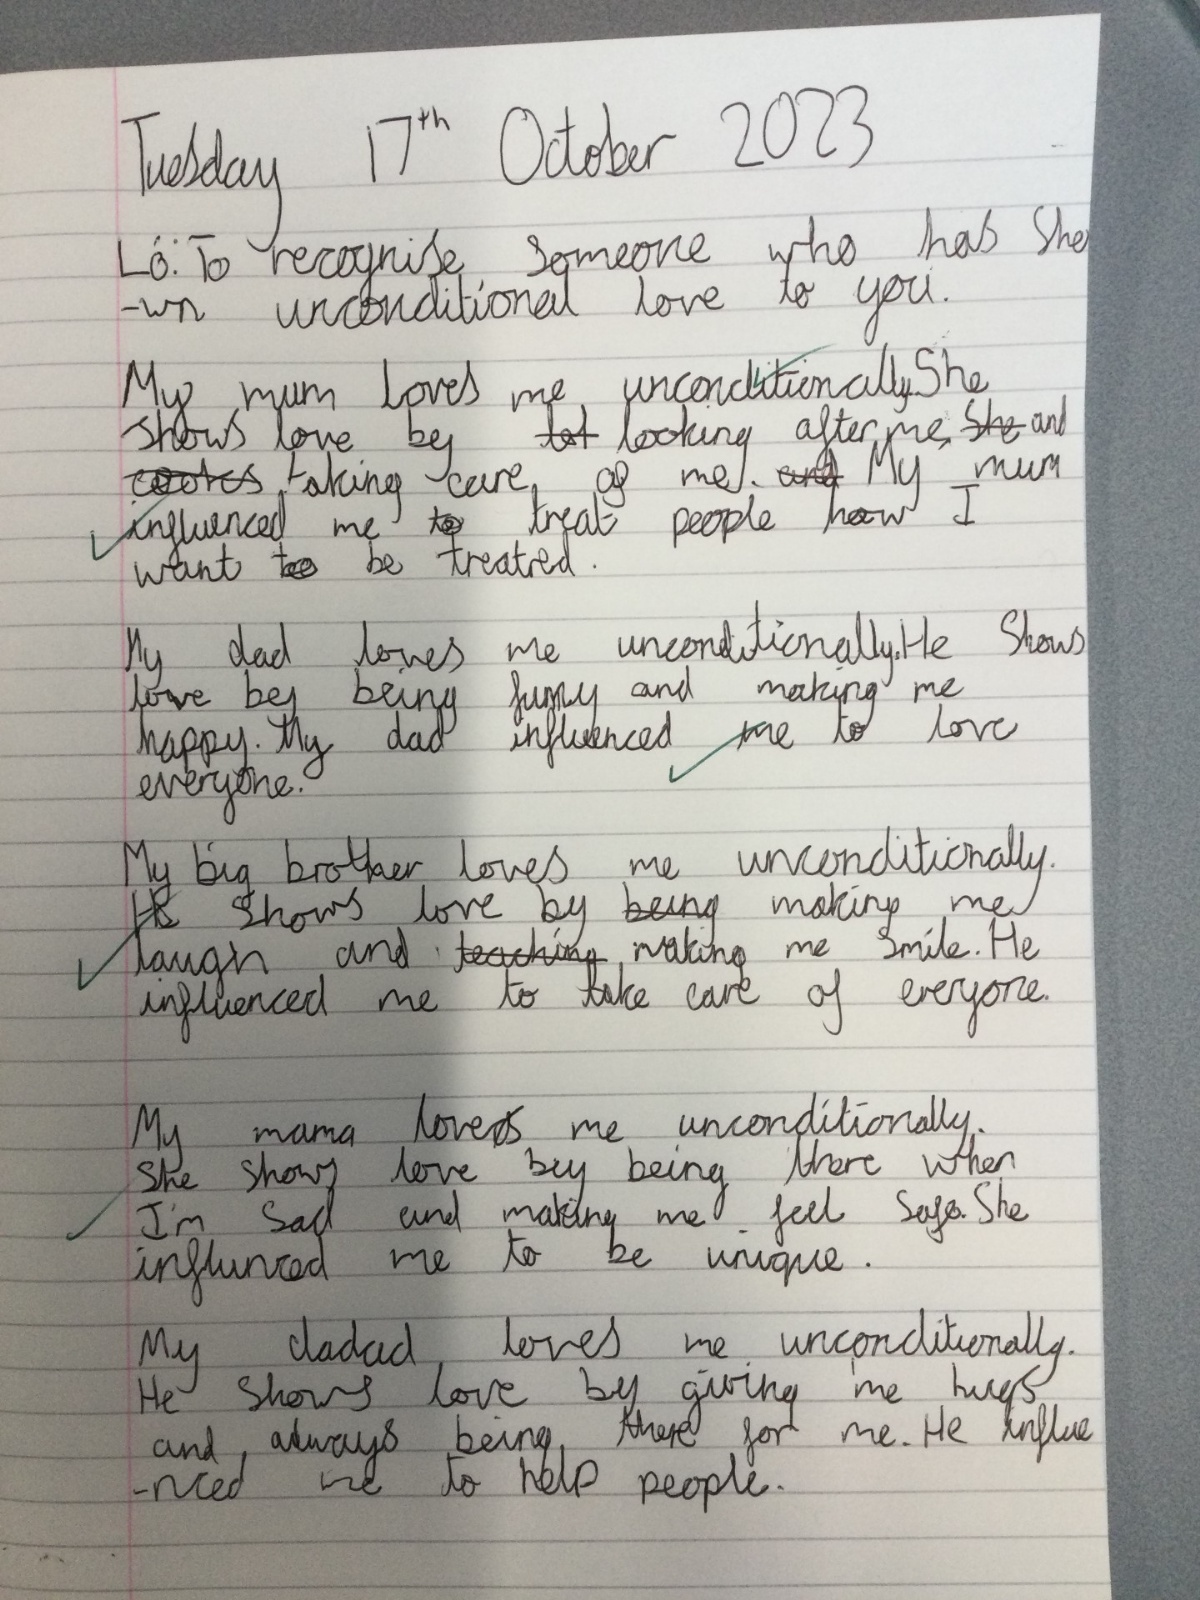 Tuesday 17th October 2023
LO: To recognise someone who has sho
-wn unconditional love to you.
My mum loves me unconditionally. She
shows love by looking after me and
taking care of me. My mum
influenced me to treat people how I
want to be treatred.
My dad loves me unconditionally. He shows
love by being funny and making me
happy. My dad influenced me to love
everyone.
My big brother loves me unconditionally.
He shows love by making me
laugh and making me smile. He
influenced me to take care of everyone.
My mama loves me unconditionally.
She shows love by being there when
I'm sad and making me feel safe. She
influnced me to be unique.
My dadad loves me unconditionally.
He shows love by giving me hugs
and always being there for me. He influe
-nced me to help people.